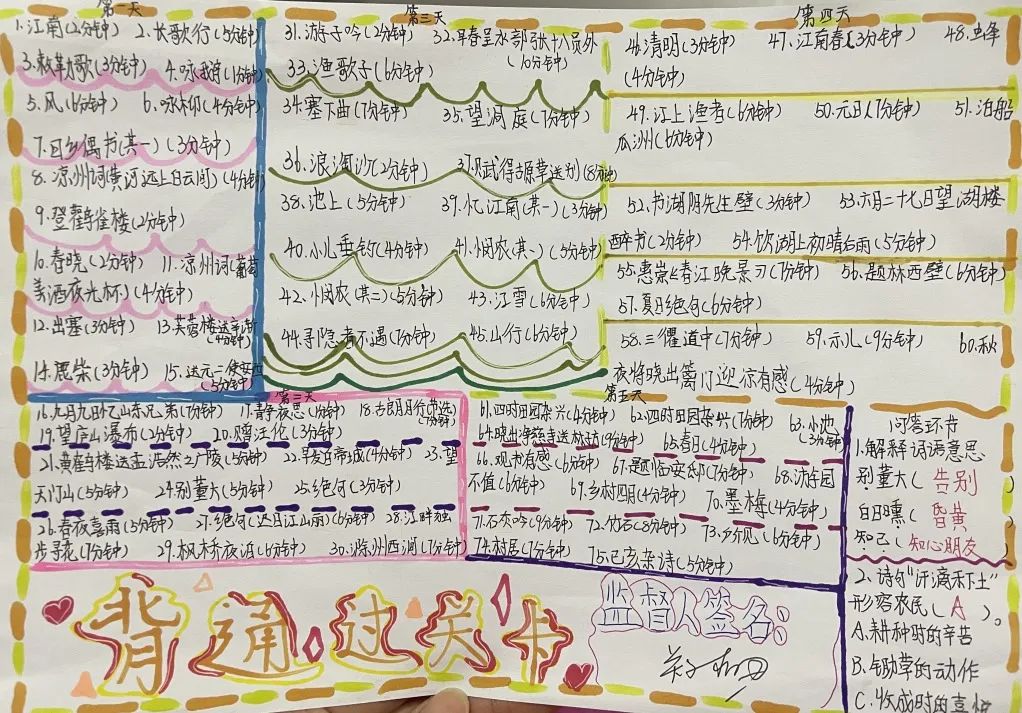 第一天
1.江南(2分钟) 2.长歌行(5分钟)
3.敕勒歌(3分钟) 4.咏鹅(1分钟)
5.风(6分钟) 6.咏柳(4分钟)
7.回乡偶书(其一)(3分钟)
8.凉州词(黄河远上白云间)(4分钟)
9.登鹳雀楼(2分钟)
10.春晓(2分钟) 11.凉州词(葡萄
美酒夜光杯)(4分钟)
12.出塞(3分钟) 13.芙蓉楼送辛渐
(4分钟)
14.鹿柴(3分钟) 15.送元二使安西
(5分钟)
第二天
16.九月九日忆山东兄弟(7分钟) 17.静夜思(1分钟) 18.古朗月行(节选)
19.望庐山瀑布(2分钟) 20.赠汪伦(3分钟)
21.黄鹤楼送孟浩然之广陵(5分钟) 22.早发白帝城(4分钟) 23.望
天门山(5分钟) 24.别董大(5分钟) 25.绝句(3分钟)
26.春夜喜雨(5分钟) 27.绝句(迟日江山丽)(6分钟) 28.江畔独
步寻花(7分钟) 29.枫桥夜泊(6分钟) 30.滁州西涧(7分钟)
第三天
31.游子吟(2分钟) 32.早春呈水部张十八员外
(10分钟)
33.渔歌子(6分钟)
34.塞下曲(7分钟) 35.望洞庭(7分钟)
36.浪淘沙(2分钟) 37.赋得古原草送别(8分钟)
38.池上(5分钟) 39.忆江南(其一)(3分钟)
40.小儿垂钓(4分钟) 41.悯农(其一)(5分钟)
42.悯农(其二)(5分钟) 43.江雪(6分钟)
44.寻隐者不遇(7分钟) 45.山行(6分钟)
第四天
46.清明(3分钟) 47.江南春(3分钟) 48.蜂
(4分钟)
49.江上渔者(6分钟) 50.元日(7分钟) 51.泊船
瓜洲(6分钟)
52.书湖阴先生壁(3分钟) 53.六月二十七日望湖楼
醉书(2分钟) 54.饮湖上初晴后雨(5分钟)
55.惠崇《春江晚景》(7分钟) 56.题林西壁(6分钟)
57.夏日绝句(6分钟)
58.三衢道中(7分钟) 59.示儿(9分钟) 60.秋
夜将晓出篱门迎凉有感(4分钟)
第五天
61.四时田园杂兴(4分钟) 62.四时田园杂兴(7分钟) 63.小池
(3分钟)
64.晓出净慈寺送林子方(9分钟) 65.春日(4分钟)
66.观书有感(6分钟) 67.题临安邸(7分钟) 68.游园
不值(6分钟) 69.乡村四月(4分钟) 70.墨梅(4分钟)
71.石灰吟(9分钟) 72.竹石(8分钟) 73.所见(6分钟)
74.村居(7分钟) 75.己亥杂诗(5分钟)
问答环节
1.解释词语意思
别董大(告别)
白日曛(昏黄)
知己(知心朋友)
2.诗句"汗滴禾下土"
形容农民(A)。
A.耕种时的辛苦
B.锄草的动作
C.收成时的喜悦
背通过关卡
监督人签名: